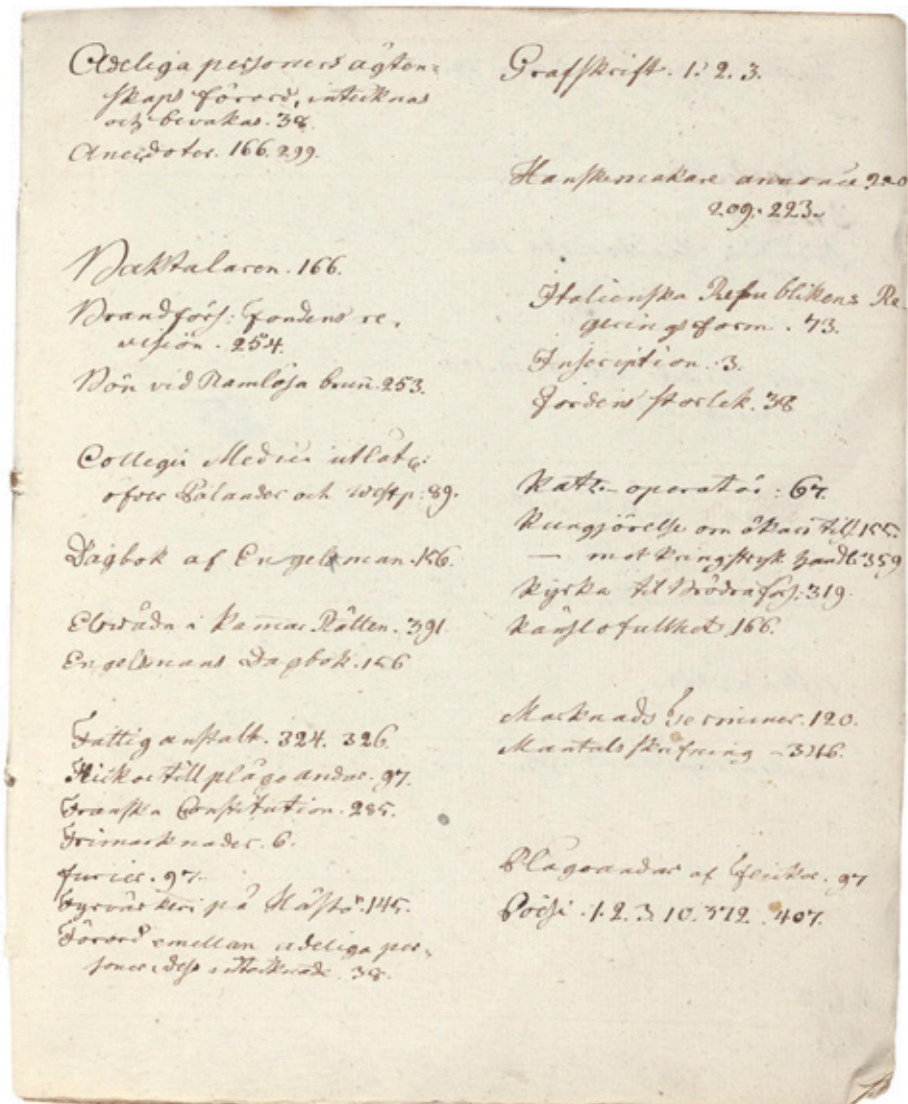 Adeliga personers ägten=
skaps förord, intecknas
och bevakas. 38.
Anecdoter. 166. 299.
Baktalaren. 166.
Brandförs: fondens re,
vision. 254.
Bön vid Ramlösa brun̄. 253.
Collegii Medici utlåt:
öfver Pålander och Westp: 89.
Dagbok af Engelsman. 156.
i Kammar Rätten. 391.
Engelsmans Dagbok. 156
Fattiganstalt. 324. 326.
Flickor till plågoandar. 97.
Franska Constitution. 285.
Frimarknader. 6.
furier. 97.
på 145.
Förord emellan adeliga per,
soner, dess intecknade. 38.
Grafskrift. 1. 2. 3.
Handskemakare annonce 220
209. 223.
Italienska Republikens Re,
geringsform. 73.
Inscription. 3.
Jordens storlek. 38
Katt-operatör: 67.
Kungjörelse om åkare till 155.
— mot kringstryk handl: 359
Kyrka til Brödraförs: 319.
Känslofullhet 166.
Marknads Terminer. 120.
Mantalsskrifning - 346.
Plågoandar af flickor. 97
Poësi. 1. 2. 3. 10. 372. 407.